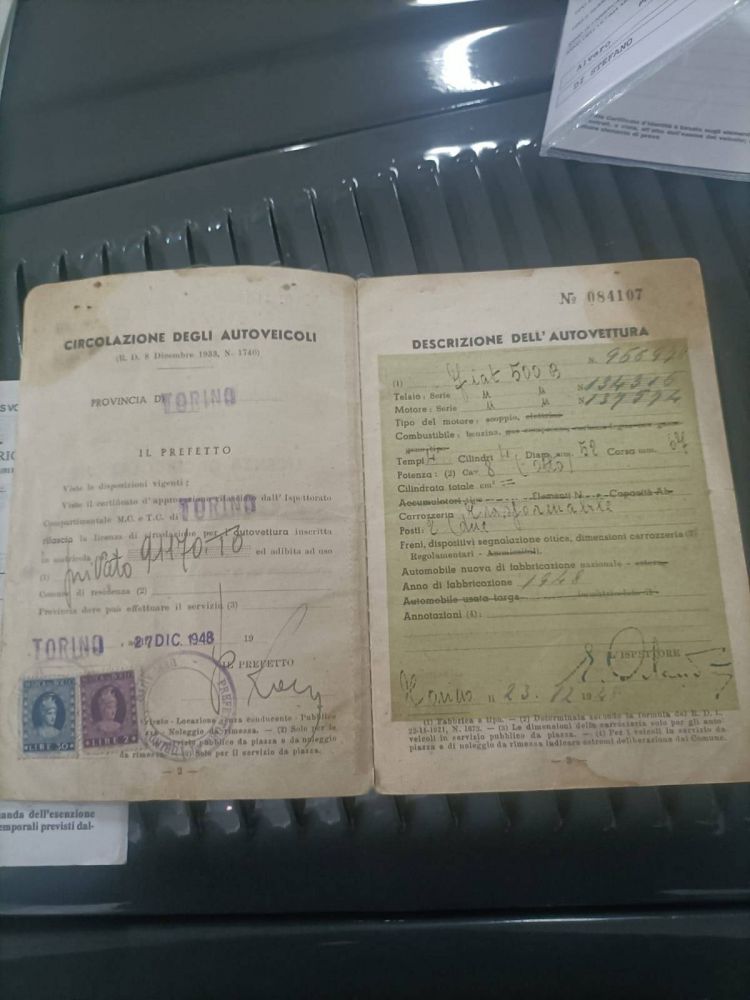 Alvaro
DI STEFANO
CIRCOLAZIONE DEGLI AUTOVEICOLI
(R. D. 8 Dicembre 1933, N. 1740)
PROVINCIA DI TORINO
IL PREFETTO
Viste le disposizioni vigenti;
Visto il certificato d'approvazione rilasciato dall'Ispettorato
Compartimentale M.C. e T.C. di TORINO
rilascia la licenza di circolazione per l'autovettura inscritta
in matricola 91170-TO ed adibita ad uso
(1) privato
Comune di residenza (2)
Provincia dove può effettuare il servizio (3)
TORINO 27 DIC. 1948 19
IL PREFETTO
LIRE
LIRE 2
Privato - Locazione senza conducente - Pubblico
Noleggio da rimessa. — (2) Solo per le
servizio pubblico da piazza e da noleggio
da rimessa. (3) Solo per il servizio da piazza.
— 2 —
Nº 084107
DESCRIZIONE DELL'AUTOVETTURA
(1) Fiat 500 B N.
Telaio: Serie " " N 134316
Motore: Serie " " N 137594
Tipo del motore: scoppio, elettrico
Combustibile: benzina,
Tempi 4 Cilindri 4 Diam. mm. 52 Corsa mm. 67
Potenza: (2) Cav. 8 (otto)
Cilindrata totale cm³
Accumulatori: tipo Elementi N. Capacità Ah.
Carrozzeria Trasformabile
Posti: 2 (due)
Freni, dispositivi segnalazione ottica, dimensioni carrozzeria (3)
Regolamentari - Ammissibili.
Automobile nuova di fabbricazione nazionale - estera
Anno di fabbricazione 1948
Automobile usata targa
Annotazioni (4):
L'ISPETTORE
Torino li 23. 12 1948
(1) Fabbrica e tipo. — (2) Determinata secondo la formula del R. D. L.
N. 1673. — (3) Le dimensioni della carrozzeria solo per gli auto-
veicoli in servizio pubblico da piazza. — (4) Per i veicoli in servizio da
piazza e di noleggio da rimessa indicare estremi deliberazione del Comune.
— 3 —
anda dell'esenzione
emporali previsti dal-